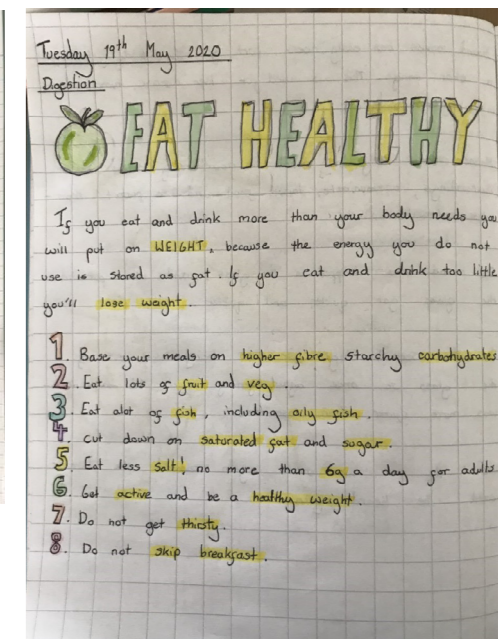 Tuesday 19th May 2020
Digestion
EAT HEALTHY
If you eat and drink more than your body needs you
will put on WEIGHT, because the energy you do not
use is stored as fat. If you eat and drink too little
you'll lose weight.
1. Base your meals on higher fibre starchy carbohydrates
2. Eat lots of fruit and veg.
3. Eat alot of fish, including oily fish.
4. cut down on saturated fat and sugar.
5. Eat less salt! no more than 6g a day for adults
6. Get active and be a healthy weight.
7. Do not get thirsty.
8. Do not skip breakfast.